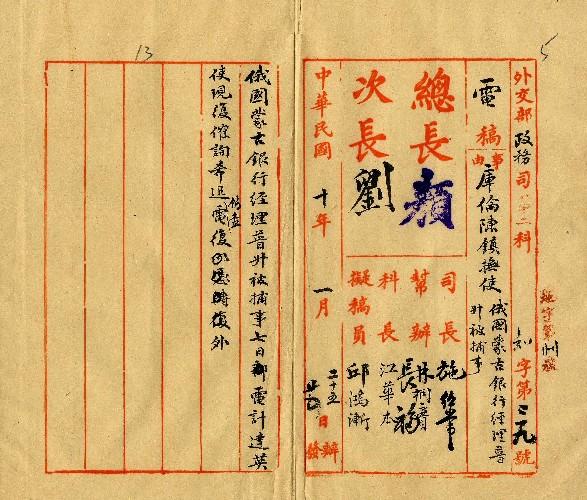 5
外交部政務司 第二科
字第 二九 號
電稿
事由 庫倫陳鎮撫使
俄國蒙古銀行經理普
升被捕事
總長 顏
次長 劉
司長 施紹常
幫辦
科長 江華本
擬稿員 邱鴻漸
中華民國 十年 一月 二十五日 辦
發
13
俄國蒙古銀行經理普升被捕事七日部電計達英
使現復催詢希迅電復
外